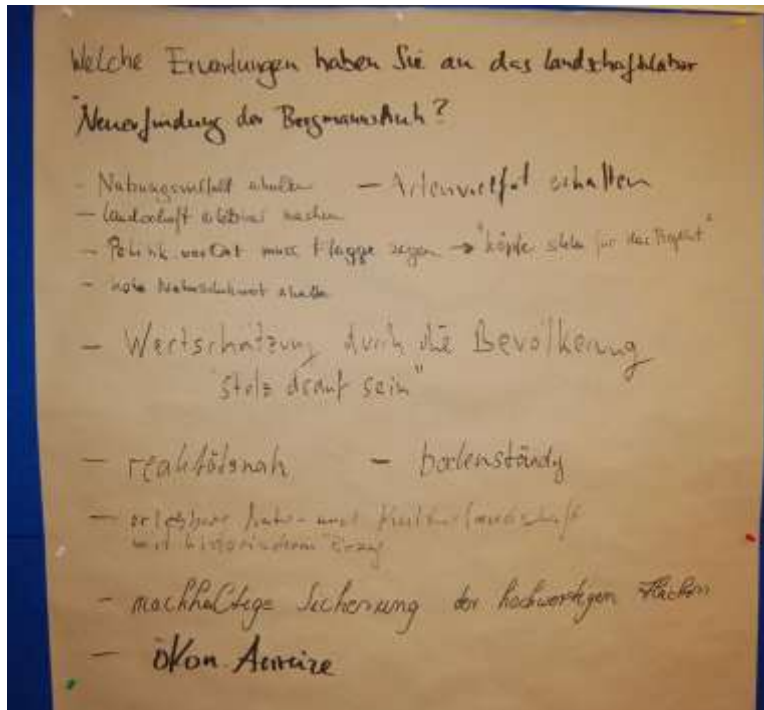 Welche Erwartungen haben Sie an das Landschaftslabor
Neuerfindung der Bergmannskuh?
- Nutzungsvielfalt erhalten - Artenvielfalt erhalten
- Landschaft erlebbar machen
- Politik vor Ort muss Flagge zeigen → "
- hohe erhalten
- Wertschätzung durch die Bevölkerung
"stolz drauf sein"
- realitätsnah - bodenständig
- erlebbare Natur- und Kulturlandschaft
mit historischem Bezug
- nachhaltige Sicherung der hochwertigen Flächen
- ökon. Anreize